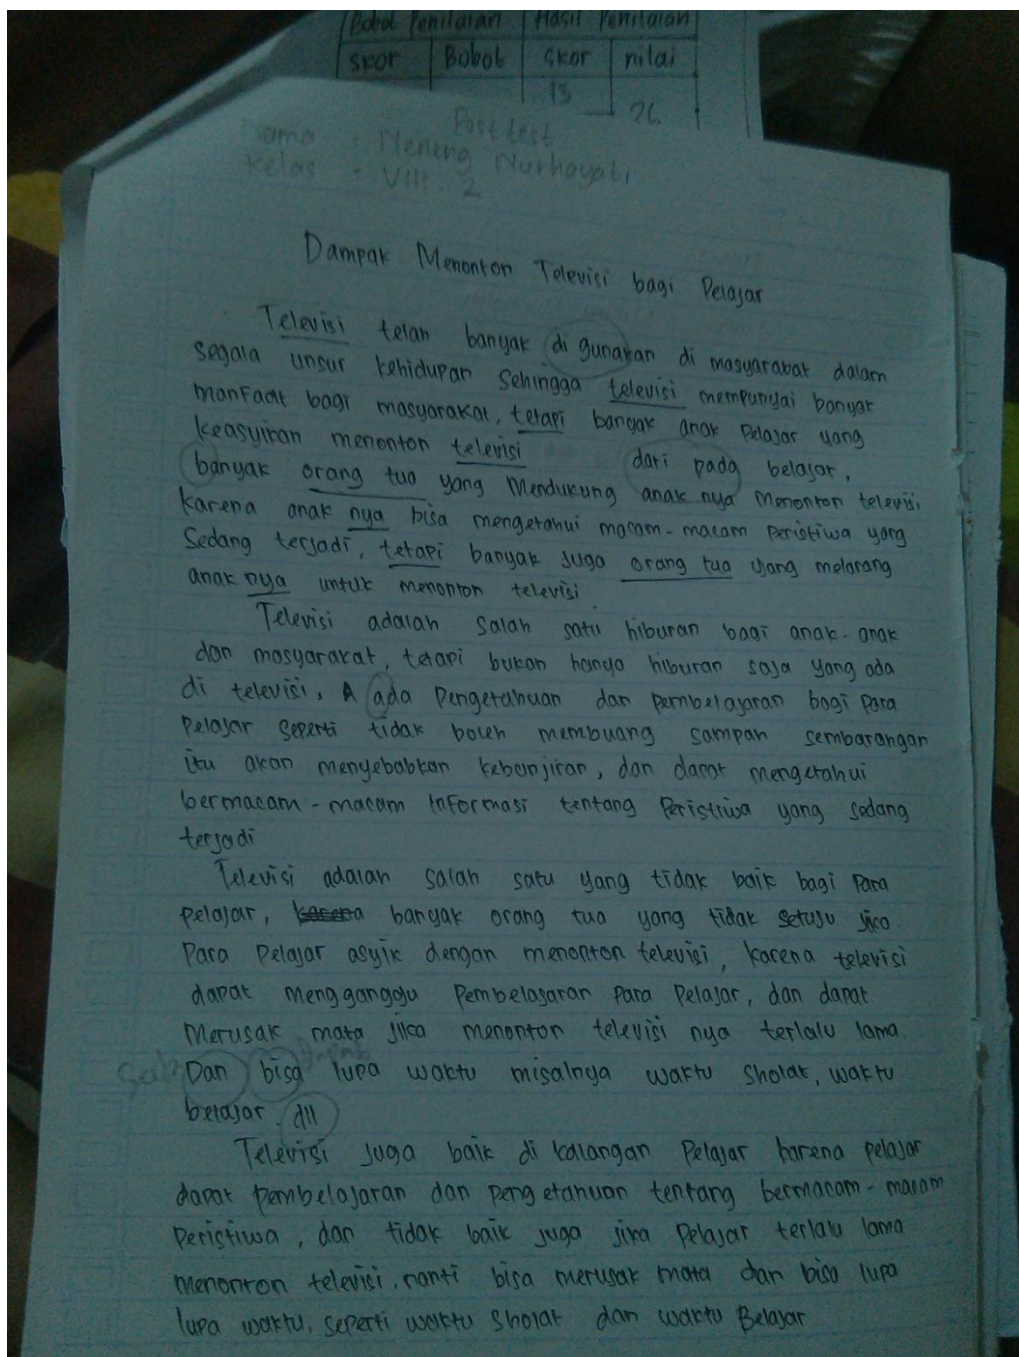 Bobot Penilaian Hasil Penilaian
skor Bobot skor nilai
13
76
Post test
Nama : Neneng Nurhayati
Kelas : VIII. 2
Dampak Menonton Televisi bagi Pelajar
Televisi telah banyak di gunakan di masyarakat dalam
segala unsur kehidupan Sehingga televisi mempunyai banyak
manfaat bagi masyarakat, tetapi banyak anak Pelajar yang
keasyikan menonton televisi dari pada belajar,
banyak orang tua yang Mendukung anak nya Menonton televisi
karena anak nya bisa mengetahui macam-macam Peristiwa yang
Sedang terjadi, tetapi banyak juga orang tua yang melarang
anak nya untuk menonton televisi
Televisi adalah salah satu hiburan bagi anak-anak
dan masyarakat, tetapi bukan hanya hiburan saja yang ada
di televisi, A ada Pengetahuan dan Pembelajaran bagi Para
Pelajar seperti tidak boleh membuang sampah sembarangan
itu akan menyebabkan kebanjiran, dan dapat mengetahui
bermacam-macam Informasi tentang Peristiwa yang sedang
terjadi
Televisi adalah salah satu yang tidak baik bagi Para
Pelajar, karena banyak orang tua yang tidak setuju jika
Para Pelajar asyik dengan menonton televisi, karena televisi
dapat mengganggu Pembelajaran Para Pelajar, dan dapat
Merusak mata jika menonton televisi nya terlalu lama.
Dan bisa lupa waktu misalnya waktu Sholat, waktu
belajar. dll
Televisi juga baik di kalangan Pelajar karena pelajar
dapat pembelajaran dan pengetahuan tentang bermacam-macam
Peristiwa, dan tidak baik juga jika Pelajar terlalu lama
menonton televisi, nanti bisa merusak mata dan bisa lupa
lupa waktu, seperti waktu Sholat dan waktu Belajar